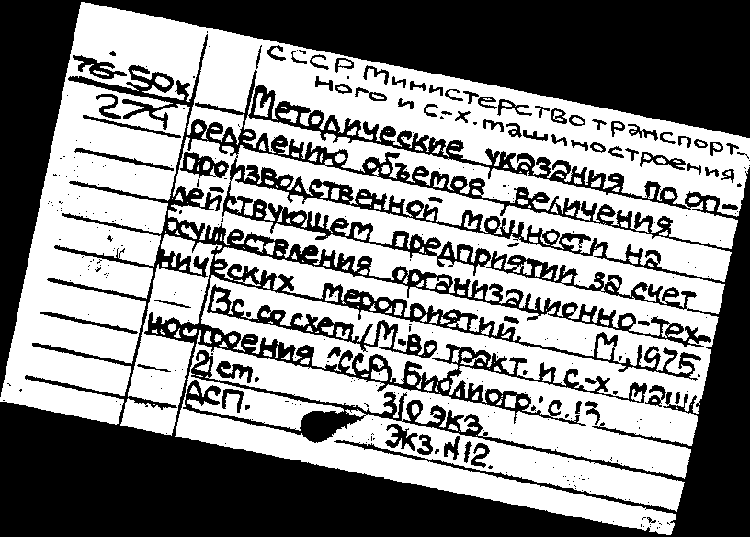 СССР. Министерство транспорт-
ного и с.-х. машиностроения.
76-50к
274
Методические указания по оп-
ределению объемов величения
производственной мощности на
действующем предприятии за счет
осуществления организационно-тех-
нических мероприятий. М., 1975
13с. со схем. (М-во тракт. и с.-х. маши-
ностроения СССР). Библиогр.: с.13.
21 cm. 310 экз.
ДСП. Экз. N12.